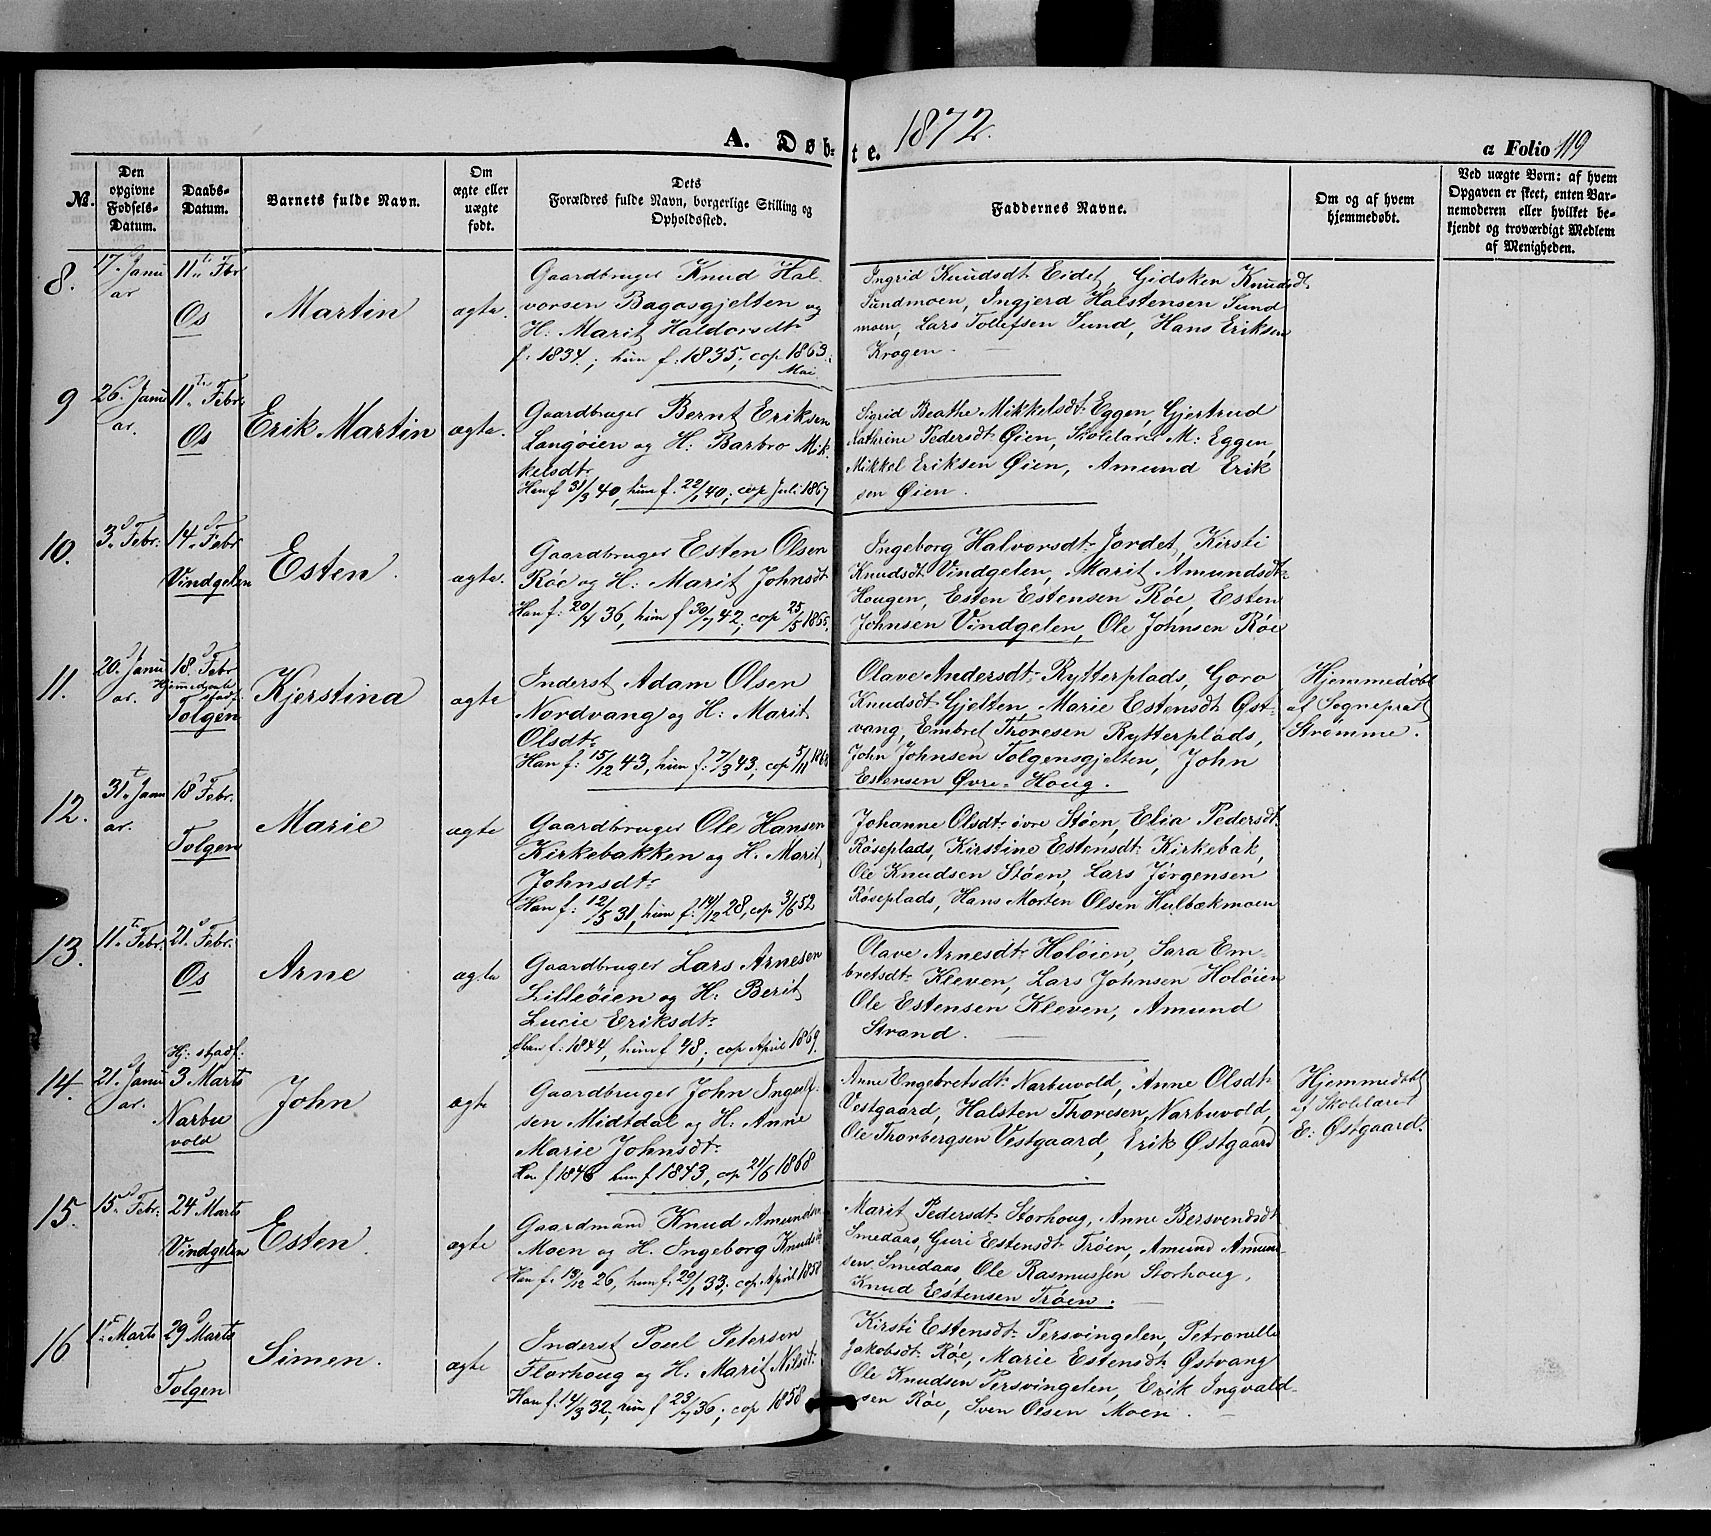 A. Døbte. 1872.
a Folio 119
№.
Den opgivne Fødsels-Datum.
Daabs-Datum.
Barnets fulde Navn.
Om ægte eller uægte født.
Dets Forældres fulde Navn, borgerlige Stilling og Opholdssted.
Faddernes Navne.
Om og af hvem hjemmedøbt.
Ved uægte Born: af hvem Opgaven er skeet, enten Barnemoderen eller hvilket bekjendt og troværdigt Medlem af Menigheden.
8.
17. Januar
11te Fbr
Os
Martin
ægte.
Gaardbruger Knud Hal
vorsen Bagosgjelten og
H. Marit Haldorsdtr
f. 1834; hun f: 1835; cop 1863.
Mai
Ingrid Knudsdt. Eidet, Gidsken Knudsdt.
Sundmoen, Ingjerd Halstensen Sund
moen, Lars Tollefsen Sund, Hans Eriksen
Krogen.
9
26. Januar.
11te Febr.
Os
Erik Martin
ægte.
Gaardbruger Bernt Eriksen
Langøien og H: Barbro Mik
kelsdtr
Han f 31/3 40, hun f. 22/1 40; cop Juli 1867
Sigrid Beathe Mikkelsdt. Eggen, Gjertrud
Kathrine Pedersdt. Øien, Skolelærer M: Eggen,
Mikkel Eriksen Øien, Amund Erik
sen Øien.
10.
3. Febr.
14. Febr
Vindgelen
Esten.
ægte.
Gaardbruger Esten Olsen
Røe og H: Marit Johnsdt
Han f: 20/4 36, hun f 30/7 42; cop 25/5 1865.
Ingeborg Halvorsdt. Jordet, Kirsti
Knudsdt Vindgelen, Marit Amundsdt.
Hougen, Esten Estensen Røe, Esten
Johnsen Vindgelen, Ole Johnsen Røe
11.
20. Januar.
18. Febr
Hjemmedaab stadf.
Tolgen
Kjerstina
ægte
Inderst Adam Olsen
Nordvang og H: Marit
Olsdt.
Han f: 15/12 43, hun f: 7/3 43, cop 5/11 186
Olave Andersdt. Rytterplads, Goro
Knudsdt. Gjelten, Marie Estensdt. Øst-
vang, Embret Thoresen Rytterplads,
John Johnsen Tolgensgjelten, John
Estensen Øvre-Houg.
Hjemmedøbt
af Sognepræst
Strømme.
12.
31t Januar.
18 Febr.
Tolgen
Marie
ægte
Gaardbruger Ole Hansen
Kirkebakken og H. Marit
Johnsdt.
Han f: 12/5 31, hun f. 14/12 28, cop 3/6 52
Johanne Olsdt. øvre Støen, Elia Pedersdt.
Røseplads, Kirstine Estensdt. Kirkebak,
Ole Knudsen Støen, Lars Jørgensen
Røseplads, Hans Morten Olsen Hulbækmoen
13.
11te Febr.
21. Febr.
Os
Arne
ægte
Gaardbruger Lars Arnesen
Lilleøien og H. Berit
Lucie Eriksdt.
Han f: 1844, hun f 48; cop April 1869.
Olave Arnesdt. Holøien, Sara Em-
bretsdt. Kleven, Lars Johnsen Holøien
Ole Estensen Kleven, Amund
Strand.
14.
21. Januar.
Hj: stadf:
3 Marts
Narbu
vold
John
ægte
Gaardbruger John Ingebr.
sen Midtdal og H. Anne
Marie Johnsdt.
Han f 1846 hun f 1843, cop 21/6 1868
Anne Engebretsdt. Narbuvold, Anne Olsdt.
Vestgaard, Halsten Thoresen, Narbuvold,
Ole Thorbergsen Vestgaard, Erik Østgaard
Hjemmedøbt
af Skolelærer
E: Østgaard.
15.
15. Febr.
24. Marts
Vindgelen
Esten.
ægte
Gaardmand Knud Amundsen
Moen og H. Ingeborg Knudsdt
Han f: 13/12 26, hun f: 29/1 33; cop April 1858
Marit Pedersdt. Storhoug, Anne Bersvendsdt
Smedaas, Guri Estensdt. Trøen, Amund Amund-
sen Smedaas Ole Rasmussen Storhoug,
Knud Estensen Trøen.
16
1. Marts
29 Marts
Tolgen
Simen.
ægte
Inderst Poul Petersen
Florhoug og H. Marit Nilsdt.
Han f: 14/3 32, hun f 23/7 36; cop 1858
Kirsti Estensdt. Persvingelen, Petronille
Jakobsdt. Røe, Marie Estensdt. Østvang
Ole Knudsen Persvingelen, Erik Ingvald-
sen Røe, Sven Olsen Moen.